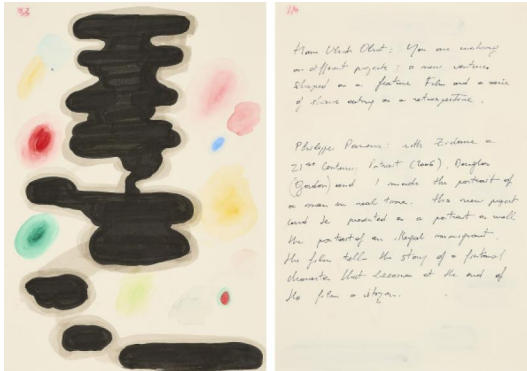 Hans Ulrich Obrist: You are working
on different projects: a new venture
shaped as a feature Film and a serie
of shows acting as a retrospective.
Philippe Parreno: with Zidane a
21st Century Portrait (2006), Douglas
(Gordon) and I made the portrait of
a man in real time. this new project
could be presented as a portrait as well
the portrait of an illegal immigrant.
the film tells the story of a fictional
character that becomes at the end of
the film a citizen.